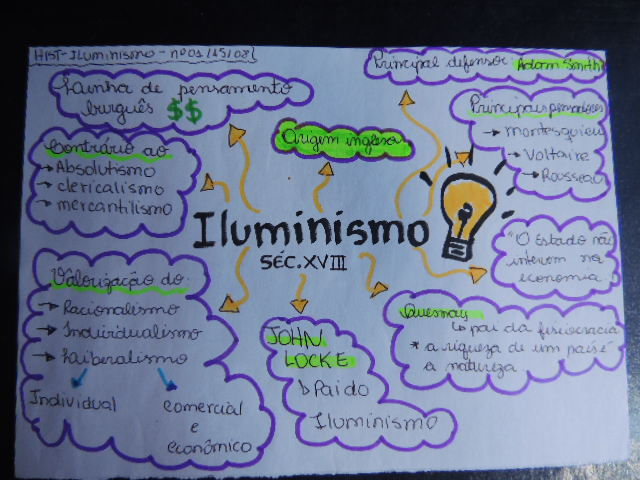 HIST-Iluminismo - nº01 /15/08
Linha de pensamento
burguês $$
Contrário ao
→ Absolutismo
→ clericalismo
→ mercantilismo
Origem inglesa
Principal defensor: Adam Smith
Principais pensadores
→ montesquieu
→ Voltaire
→ Rousseau
Iluminismo
SÉC. XVIII
"O Estado não
interven na
economia."
Valorização do:
→ Racionalismo
→ Individualismo
→ Liberalismo
Individual
comercial
e
econômico
JOHN
LOCKE
Pai do
Iluminismo
Quesnay
↳ pai da fisiocracia
* a riqueza de um país é
a natureza